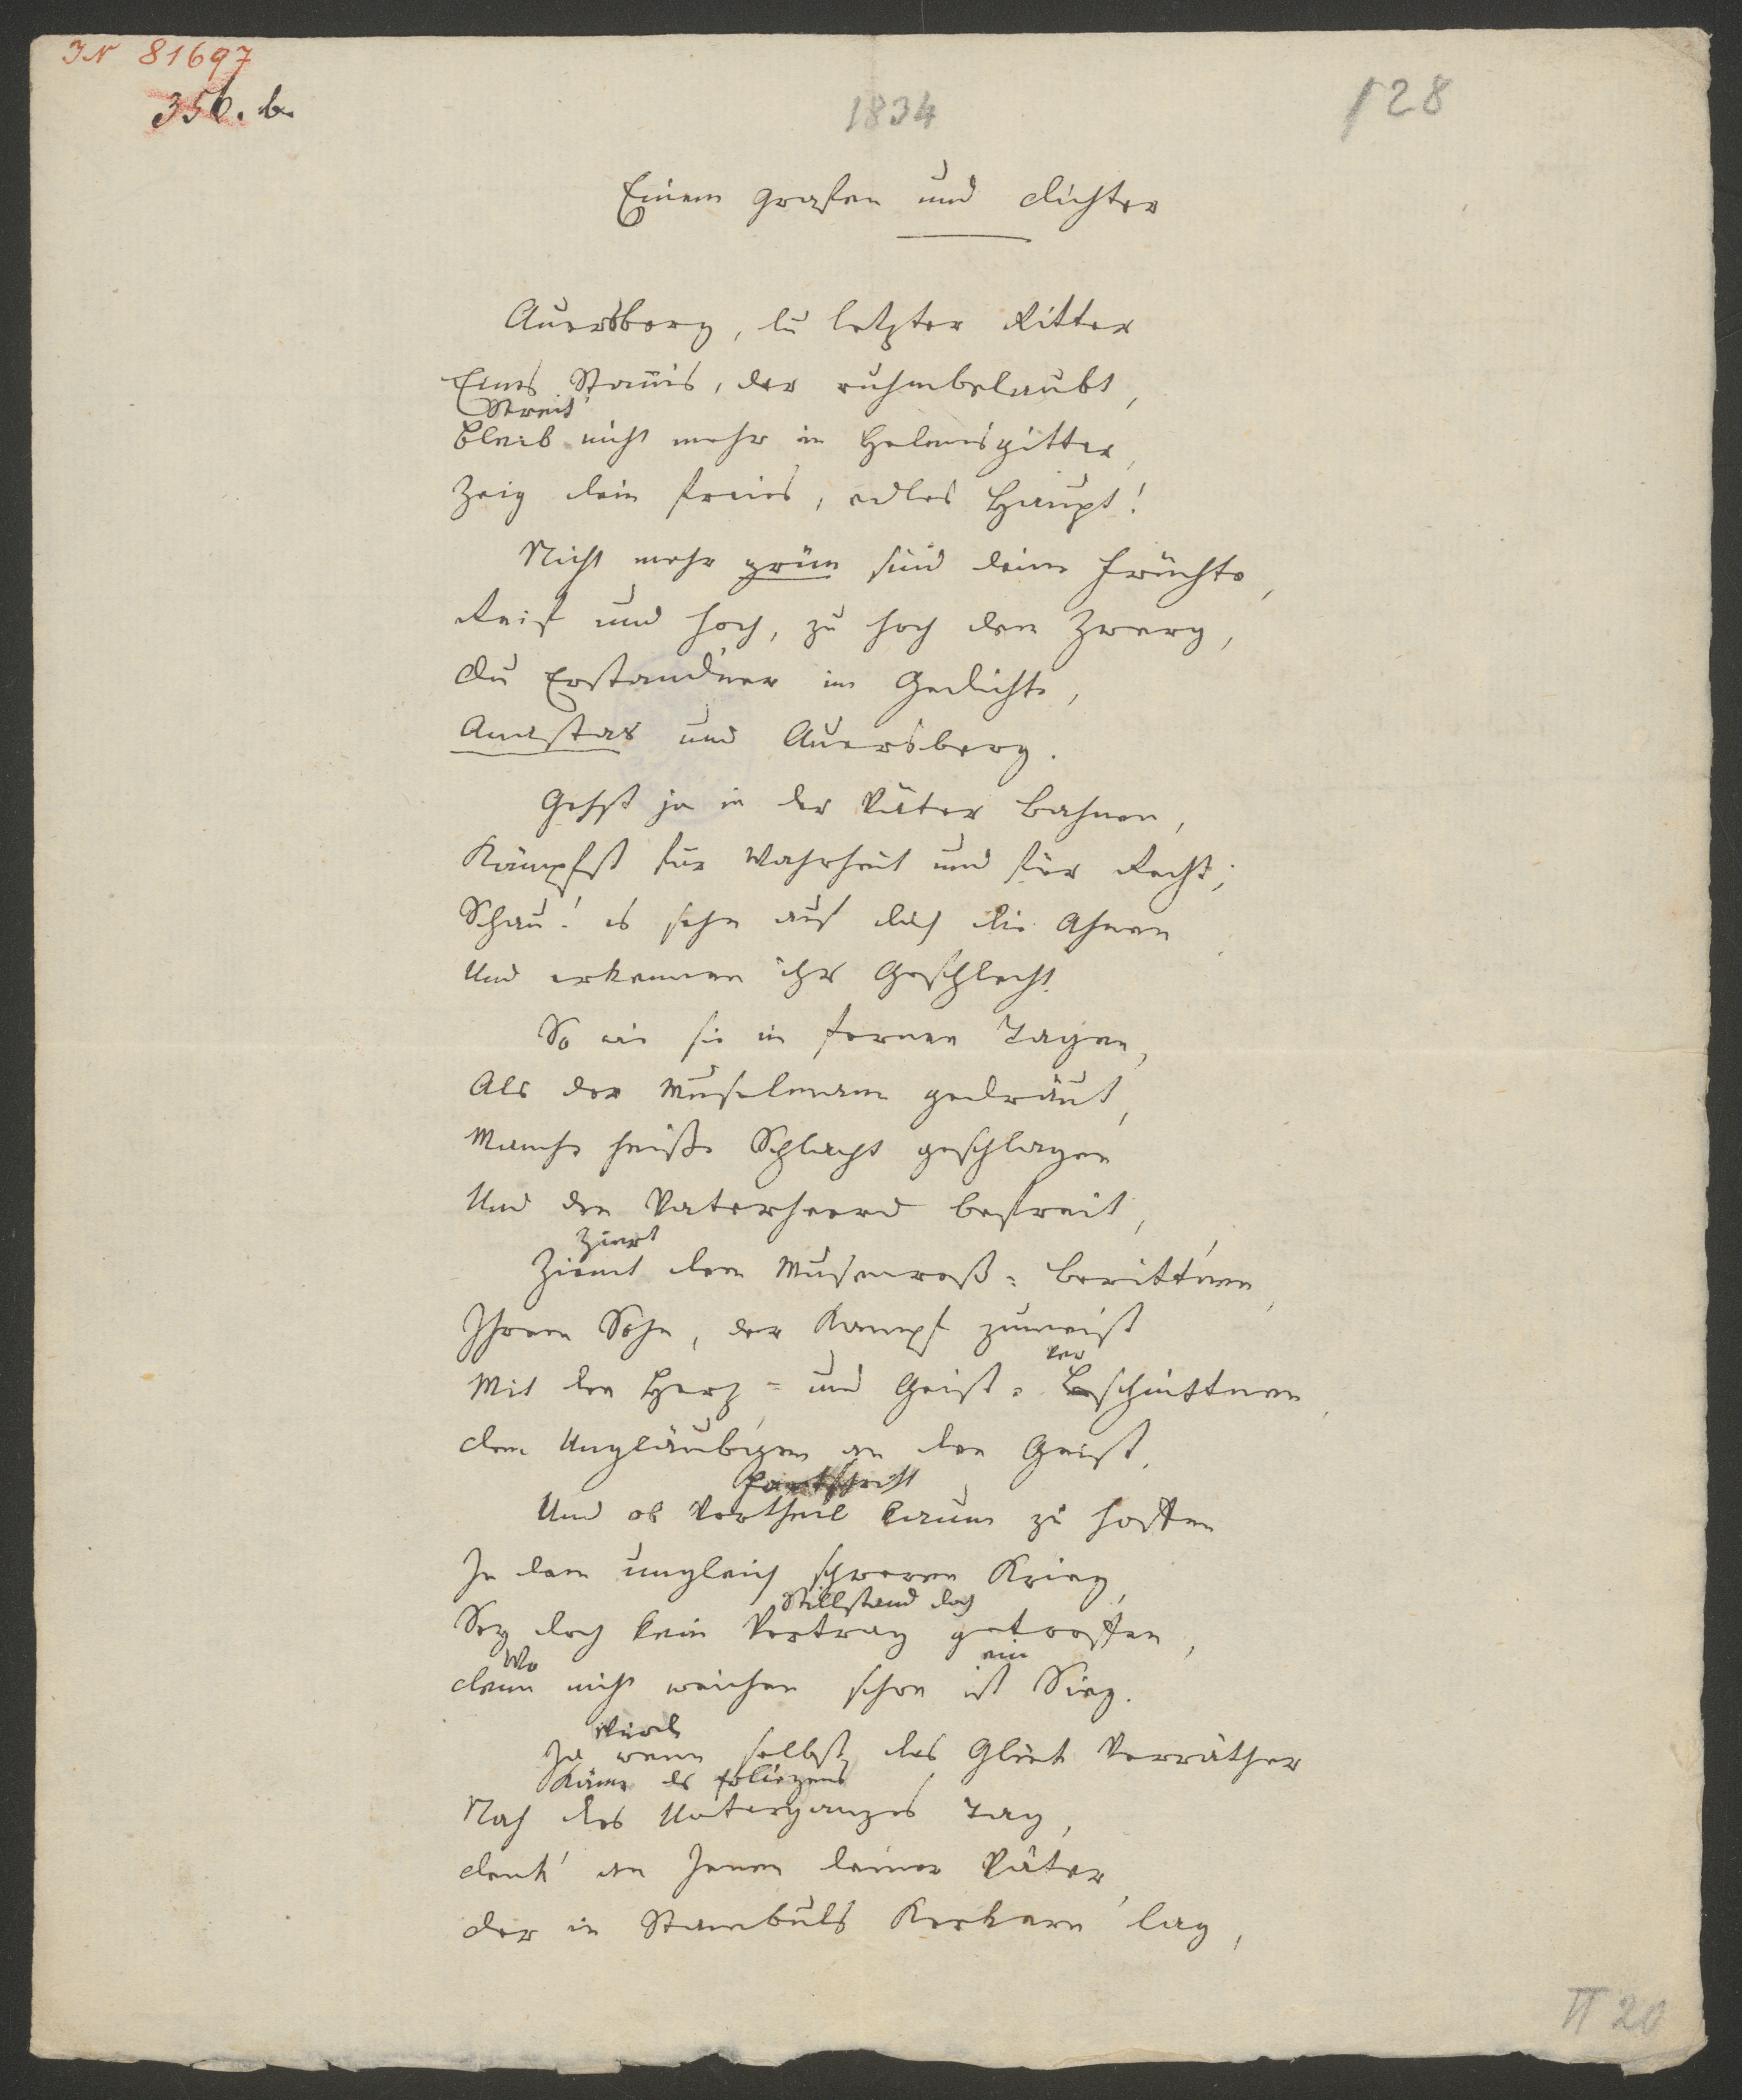 IN 81697
356. b.
1834
128
Einem Grafen und Dichter
Auersberg, du letzter Ritter
Eines Stamms, der ruhmbelaubt,
Streit'
Bleib nicht mehr in Helmesgitter,
Zeig dein freies, edles Haupt!
Nicht mehr grün sind deine Früchte,
Reif und hoch, zu hoch dem Zwerg,
Du Erstand'ner im Gedichte,
Anastas und Auersberg.
Gehst ja in der Väter Bahnen,
Kämpfst für Wahrheit und für Recht;
Schau! es sehn auf dich die Ahnen
Und erkennen ihr Geschlecht.
So wie sie in fernen Tagen,
Als der Muselmann gedräut,
Manche heiße Schlacht geschlagen
Und den Vaterheerd befreit,
Ziert
Ziemt dem Musenroß-beritt'nen,
Ihrem Sohn, der Kampf zumeist
Mit den Herz- und Geist-Beschnittnen,
ver
Den Ungläubigen an den Geist.
Fortschritt
Und ob Vortheil kaum zu hoffen
In dem ungleich schweren Krieg,
Stillstand doch
Sey doch kein Vertrag getroffen,
Wo
ein
Denn nicht weichen schon ist Sieg.
würd
Ja wenn selbst das Glück Verräther
Käme des
Nach des Unterganges Tag,
Denk' an Jenen deiner Väter,
Der in Stambuls Kerkern lag,
II 20